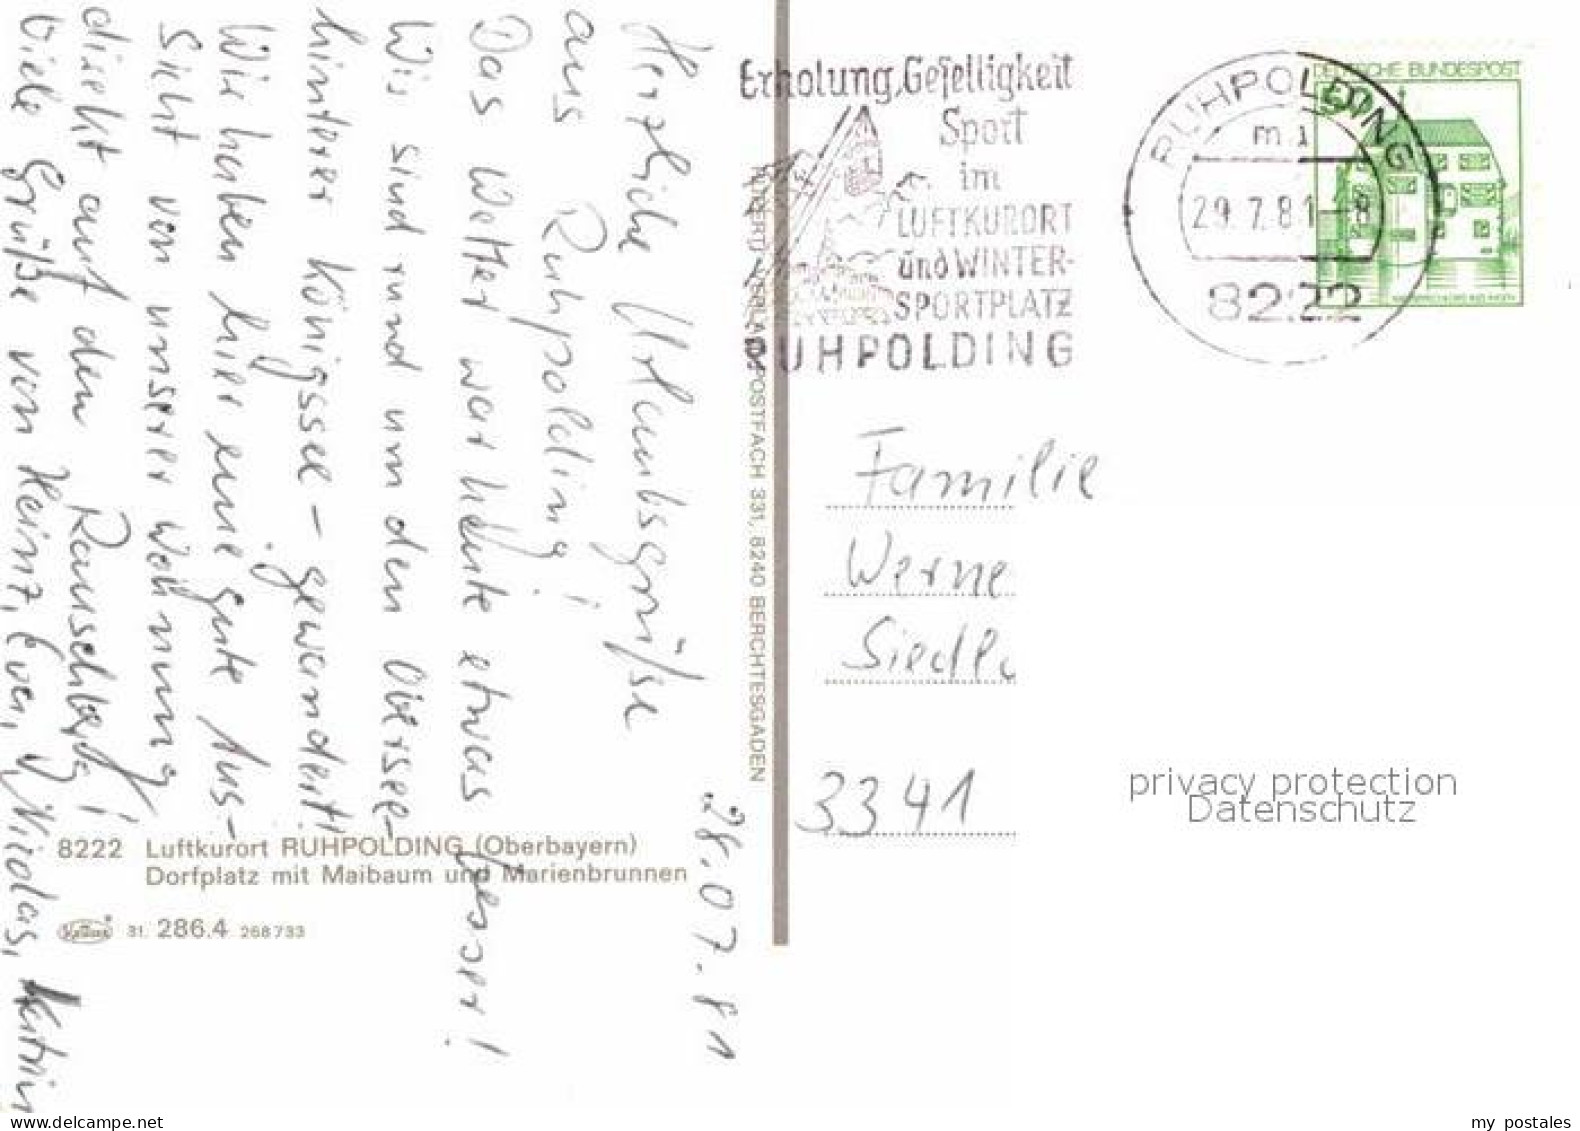 28.07.81
Herzliche Urlaubsgrüße
aus Ruhpolding!
Das Wetter war heute etwas besser!
Wir sind rund um den Obersee-
hinterer Königssee - gewandert!
Wir haben hier eine gute Aus-
sicht von unserer Wohnung
direkt auf den Rauschberg!
Viele Grüße von Heinz, Eva, Niklas, Katrin
Erholung, Geselligkeit
Sport
im
LUFTKURORT
und WINTER-
SPORTPLATZ
RUHPOLDING
RUHPOLDING
29.7.81-8
8222
DEUTSCHE BUNDESPOST
50
VERLAG, POSTFACH 331, 8240 BERCHTESGADEN
Familie
Werne
Siedl
3341
privacy protection
Datenschutz
8222 Luftkurort RUHPOLDING (Oberbayern)
Dorfplatz mit Maibaum und Marienbrunnen
31. 286.4 268733
my postales
www.delcampe.net